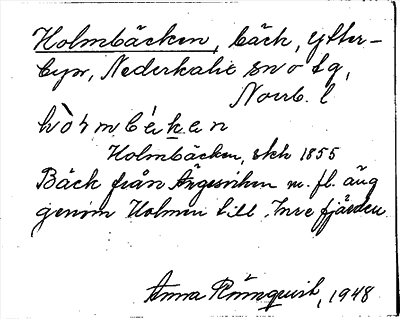 Holmbäcken, bäck, Ytter-
byn, Nederkalix sn o tg,
Norrb. l
Holmbäcken, skk 1855
Bäck från m. fl. äng
genom Holmen till Inre fjärden
Anna Rönnqvist, 1948